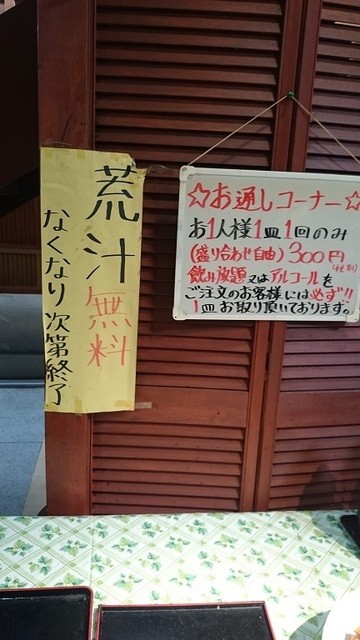 荒汁無料
なくなり次第終了
☆お通しコーナー☆
お1人様1皿1回のみ
(盛り合わせ自由)300円(税別)
飲み放題又はアルコールを
ご注文のお客様には必ず!!
1皿お取り頂いております。